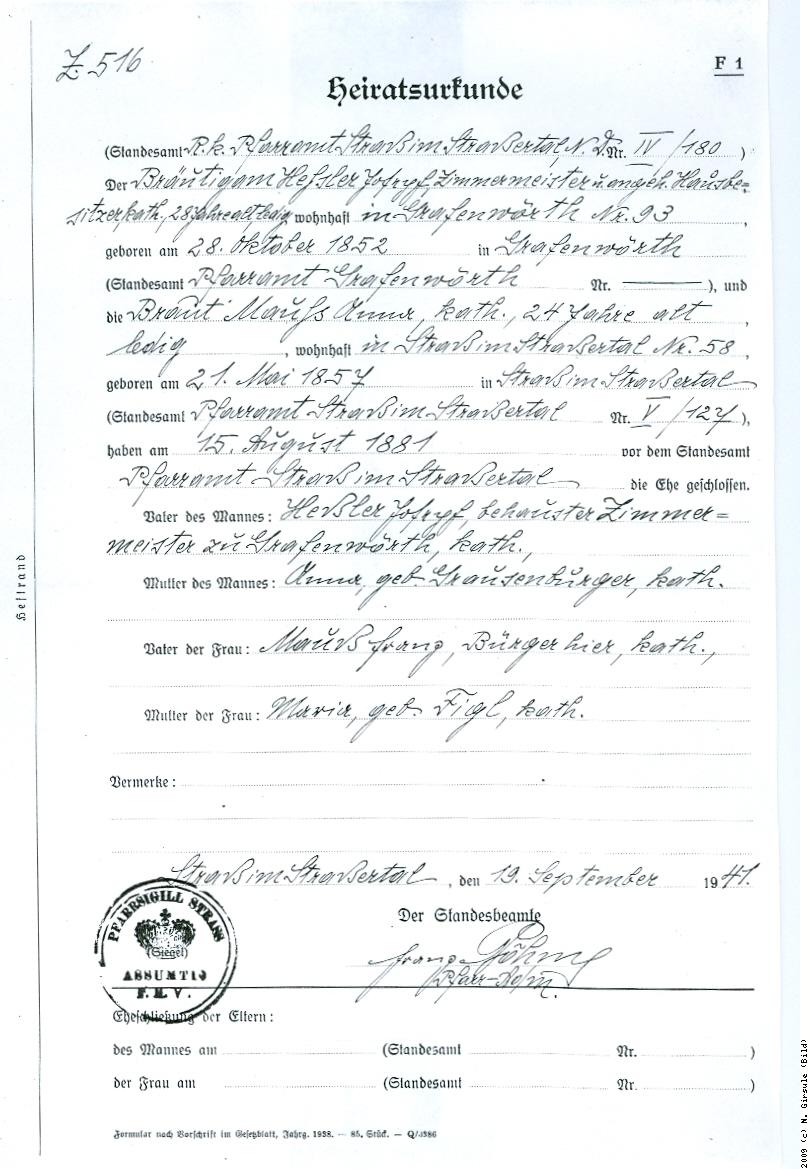 Z. 516
F 1
Heiratsurkunde
(Standesamt R. k. Pfarramt Straß im Straßertal, N. D. Nr. IV /180 )
Der Bräutigam Heßler Josef, Zimmermeister u. angeh. Hausbe=
sitzer, kath., 28 Jahre alt, ledig, wohnhaft in Grafenwörth Nr. 93 ,
geboren am 28. Oktober 1852 in Grafenwörth
(Standesamt Pfarramt Grafenwörth Nr. ———), und
die Braut Mauß Anna, kath., 24 Jahre alt ,
ledig , wohnhaft in Straß im Straßertal Nr. 58 ,
geboren am 21. Mai 1857 in Straß im Straßertal
(Standesamt Pfarramt Straß im Straßertal Nr. V /127 ),
haben am 15. August 1881 vor dem Standesamt
Pfarramt Straß im Straßertal die Ehe geschlossen.
Vater des Mannes: Heßler Josef, behauster Zimmer=
meister zu Grafenwörth, kath.,
Mutter des Mannes: Anna, geb. Grausenburger, kath.
Vater der Frau: Mauß Franz, Bürger hier, kath.,
Mutter der Frau: Maria, geb. Figl, kath.
Vermerke:
Straß im Straßertal , den 19. September 1941.
Der Standesbeamte
Franz
PFARRSIGILL STRASS
(Siegel)
ASSUMTIO
B. M. V.
Eheschließung der Eltern:
des Mannes am (Standesamt Nr. )
der Frau am (Standesamt Nr. )
Formular nach Vorschrift im Gesetzblatt, Jahrg. 1938. — 85. Stück. —
Heftrand
2009 (c) N. Girsule (Bild)